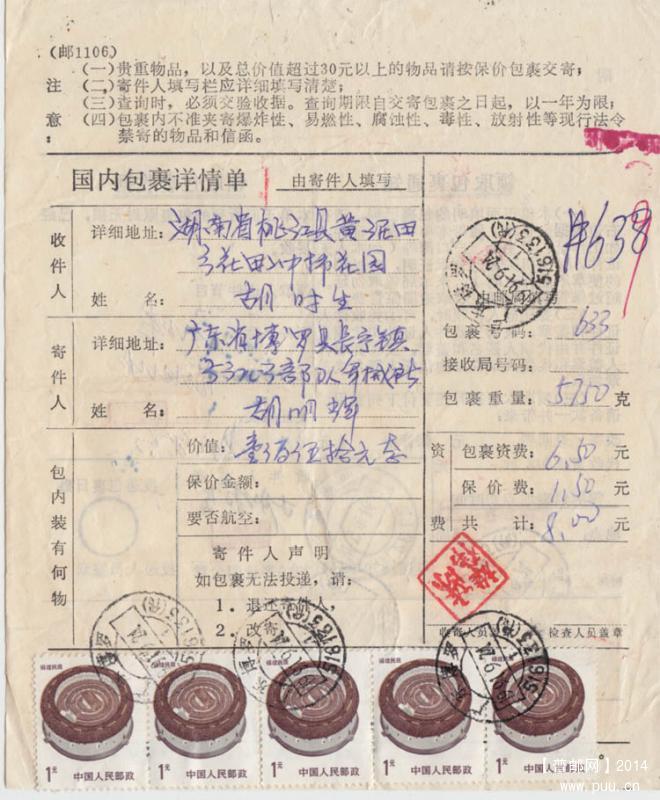 (邮1106)
注意:
(一)贵重物品，以及总价值超过30元以上的物品请按保价包裹交寄;
(二)寄件人填写栏应详细填写清楚;
(三)查询时，必须交验收据。查询期限自交寄包裹之日起，以一年为限;
(四)包裹内不准夹寄爆炸性、易燃性、腐蚀性、毒性、放射性等现行法令
禁寄的物品和信函。
国内包裹详情单
由寄件人填写
收件人
详细地址: 湖南省桃江县黄泥田
棉花园
姓 名: 胡时生
寄件人
详细地址: 广东省博罗县长宁镇
号部队
姓 名: 胡明辉
包内装有何物
价值: 壹百伍拾元
保价金额:
要否航空:
寄件人声明
如包裹无法投递，请:
1．退还寄件人，
2．改寄
#638
包裹号码: 633
接收局号码:
包裹重量: 5750 克
资费
包裹资费: 6.50 元
保价费: 1.50 元
共计: 8.00 元
收寄人员
检查人员盖章
516133(代)
1991.9.24
广东博罗
福建民居
1元
中国人民邮政
福建民居
1元
中国人民邮政
福建民居
1元
中国人民邮政
福建民居
1元
中国人民邮政
1元
中国人民邮政
【普邮网】2014
www.puu.cn